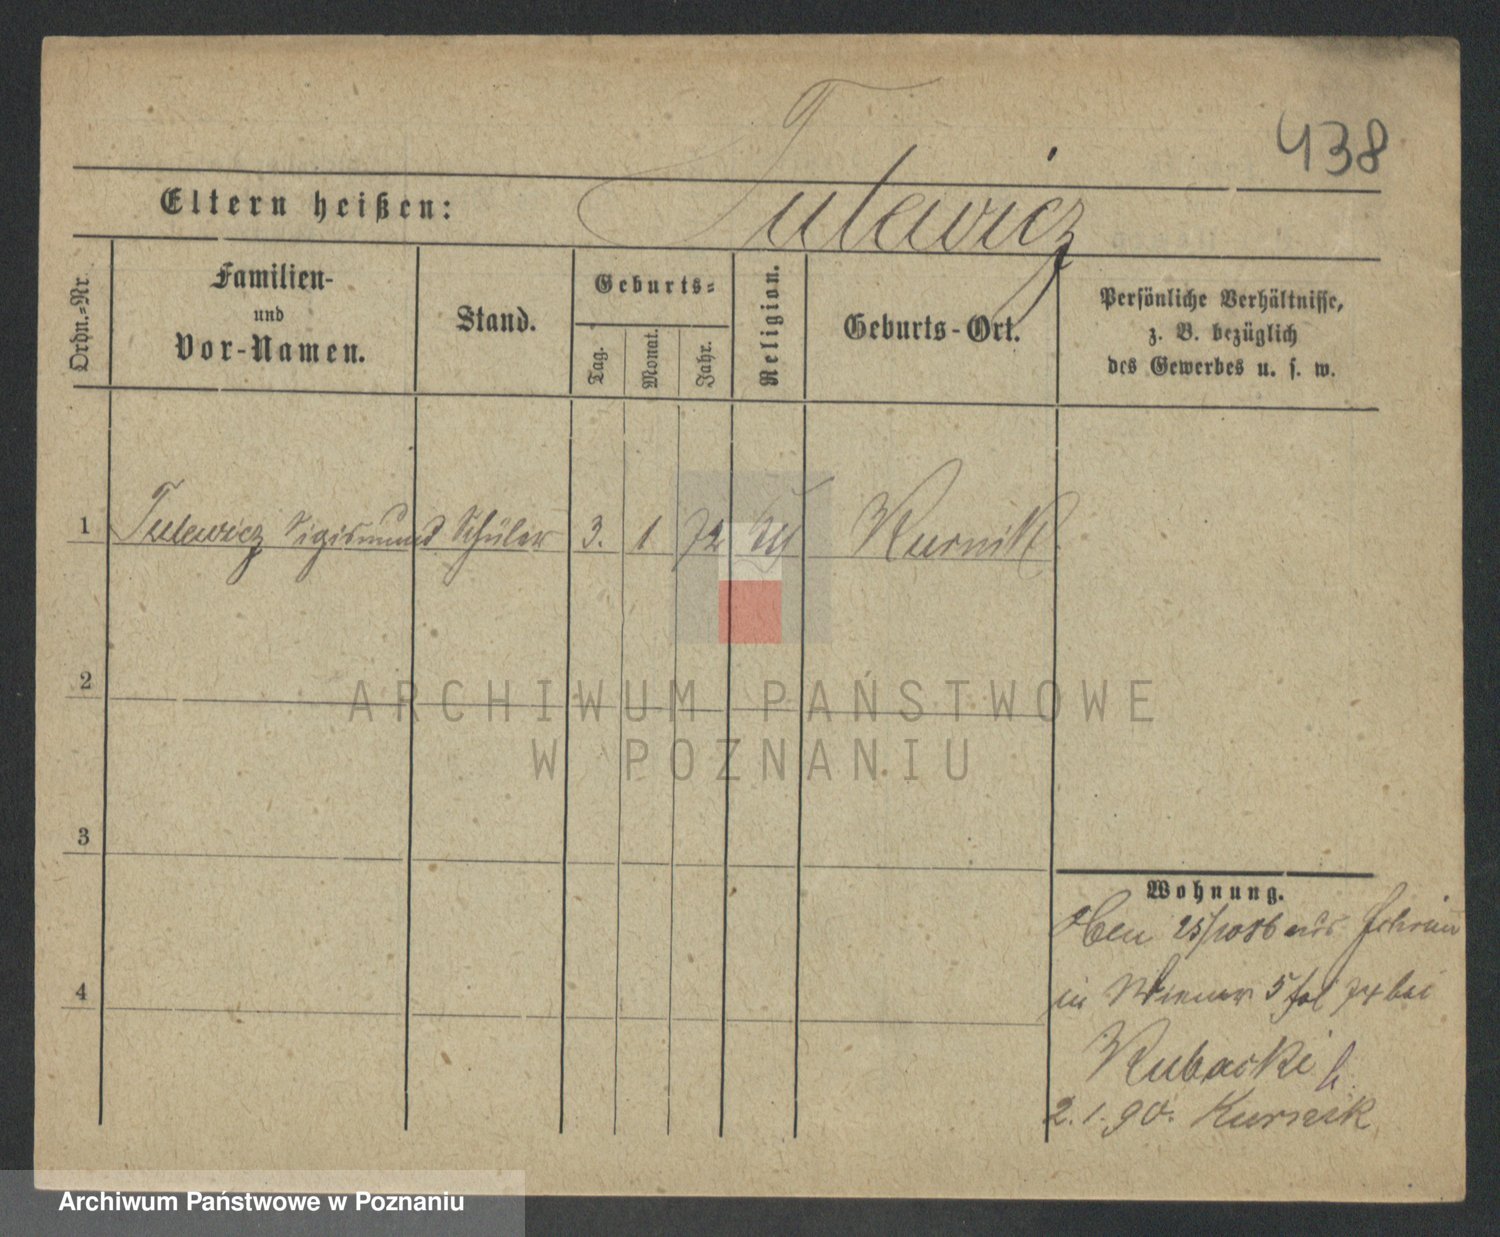 438
Eltern heißen: Tulewicz
Ordn.-Nr.
Familien-
und
Vor-Namen.
Stand.
Geburts-
Tag.
Monat.
Jahr.
Religion.
Geburts-Ort.
Persönliche Verhältnisse,
z. B. bezüglich
des Gewerbes u. s. w.
1 Tulewicz Sigismund Schüler 3. 1 72 Kurnik
2
3
4
ARCHIWUM PAŃSTWOWE
W POZNANIU
Wohnung.
25/10 86 aus
in 5 bei
Rubacki
2.1.90. Kurnik
Archiwum Państwowe w Poznaniu